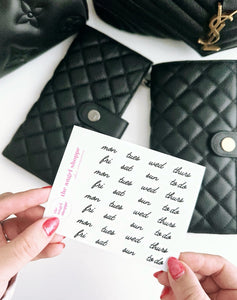 the angel shoppe
mon tues wed thurs
fri sat sun to do
mon tues wed thurs
fri sat sun to do
mon tues wed thurs
fri sat sun to do
mon tues wed thurs
fri sat sun to do
YSL